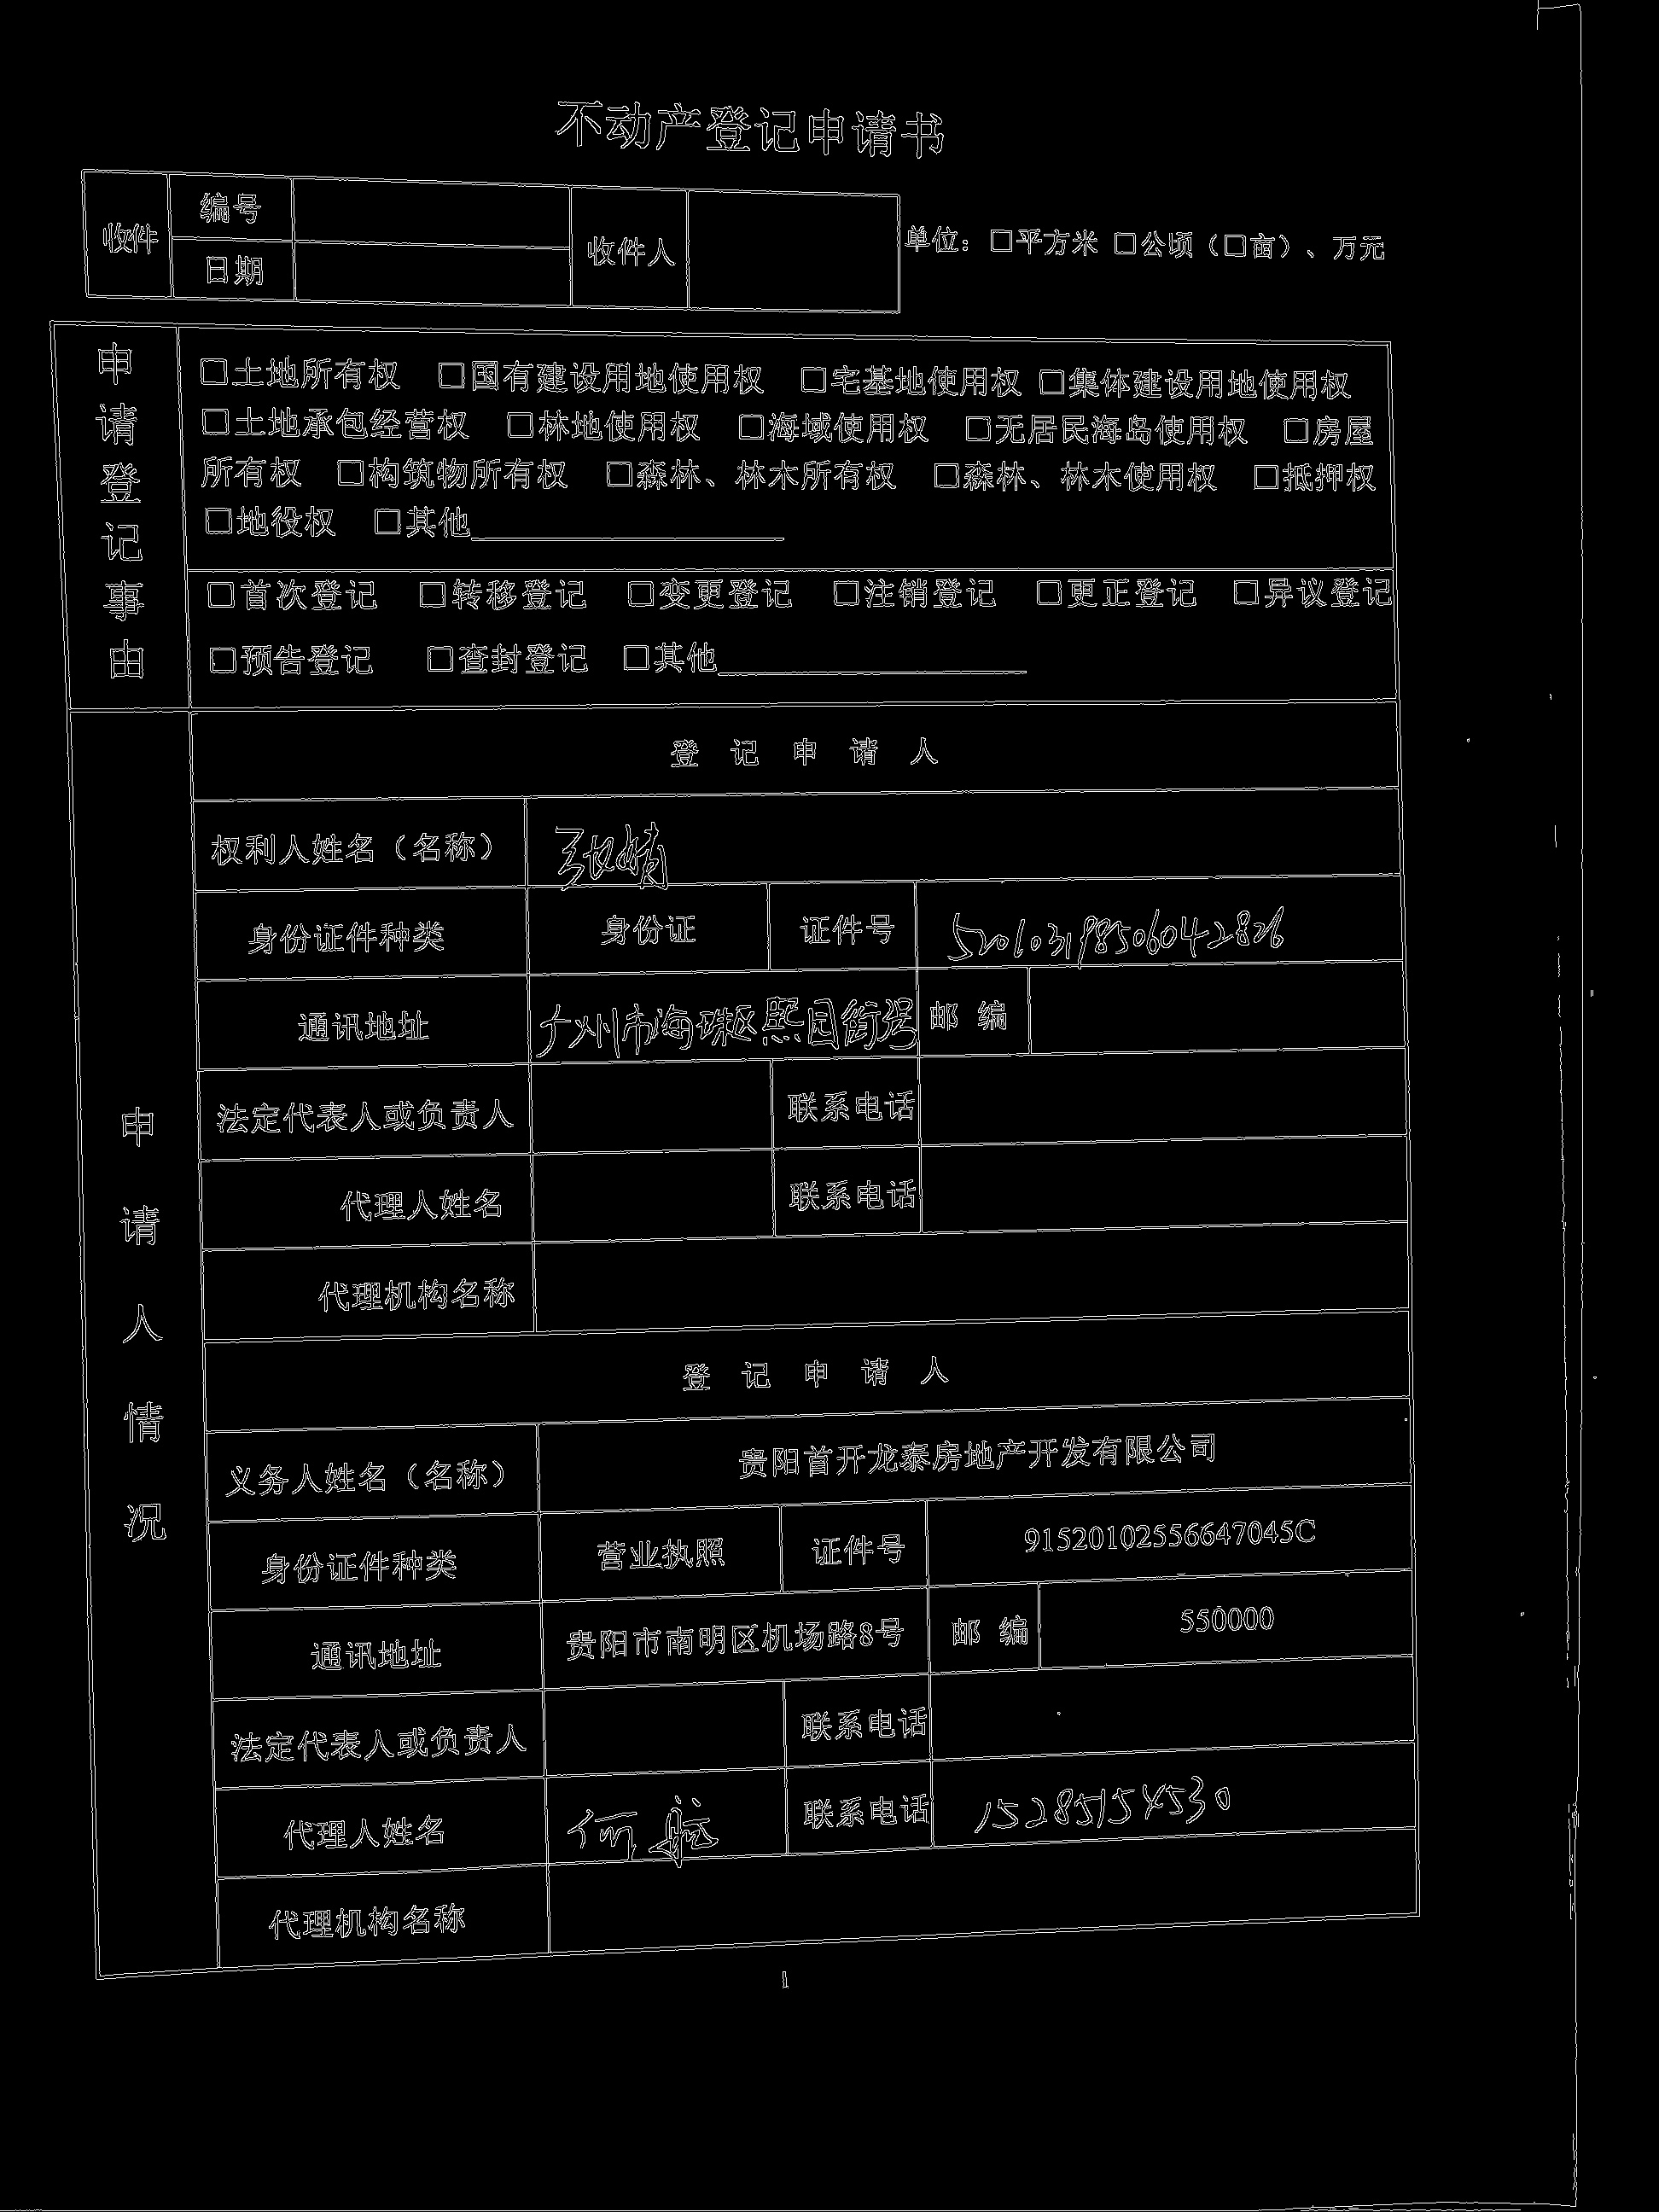 不动产登记申请书
收件 编号 收件人 单位：□平方米 □公顷（□亩）、万元
日期
申请登记事由
□土地所有权 □国有建设用地使用权 □宅基地使用权 □集体建设用地使用权
□土地承包经营权 □林地使用权 □海域使用权 □无居民海岛使用权 □房屋
所有权 □构筑物所有权 □森林、林木所有权 □森林、林木使用权 □抵押权
□地役权 □其他
□首次登记 □转移登记 □变更登记 □注销登记 □更正登记 □异议登记
□预告登记 □查封登记 □其他
申请人情况
登记申请人
权利人姓名（名称） 张婧
身份证件种类 身份证 证件号 520103198506042826
通讯地址 广州市海珠区熙园街号 邮编
法定代表人或负责人 联系电话
代理人姓名 联系电话
代理机构名称
登记申请人
义务人姓名（名称） 贵阳首开龙泰房地产开发有限公司
身份证件种类 营业执照 证件号 91520102556647045C
通讯地址 贵阳市南明区机场路8号 邮编 550000
法定代表人或负责人 联系电话
代理人姓名 何航 联系电话 15285154530
代理机构名称